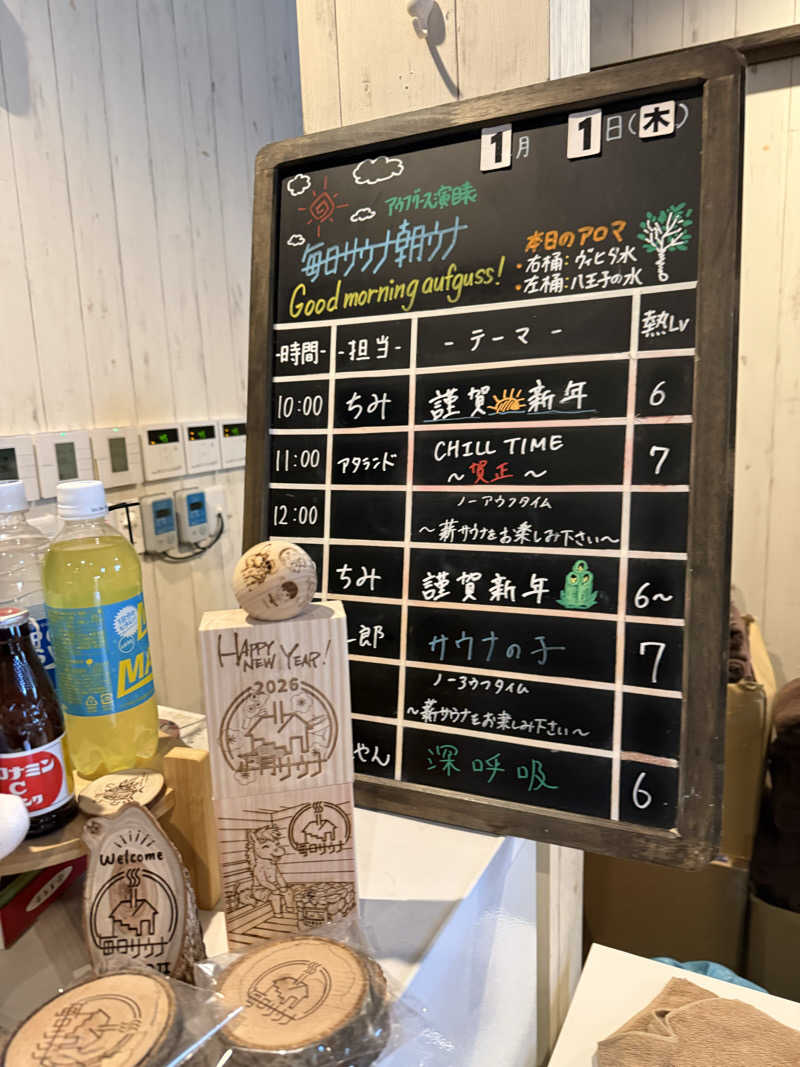 1月 1日(木)
アウフグース演目表
毎日サウナ朝ウナ
Good morning aufguss!
本日のアロマ
・右桶:ヴィヒタ水
・左桶:八王子の水
-時間- -担当- -テーマ- 熱Lv
10:00 ちみ 謹賀新年 6
11:00 アタランド CHILL TIME 7
～賀正～
12:00 ノーアウフタイム
～薪サウナをお楽しみ下さい～
ちみ 謹賀新年 6~
郎 サウナの子 7
ノーアウフタイム
～薪サウナをお楽しみ下さい～
やん 深呼吸 6
HAPPY
NEW YEAR!
2026
正月サウナ
毎日サウナ
Welcome
毎日サウナ
MA
ナミン
C